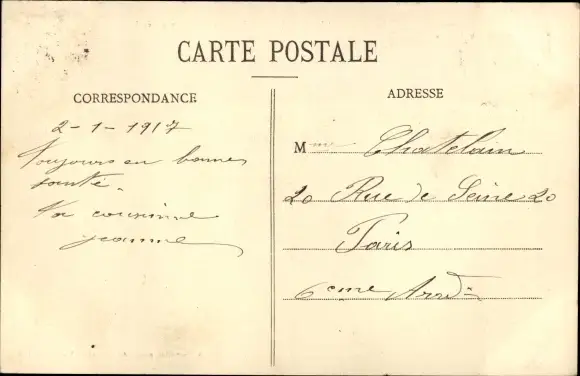 CARTE POSTALE
CORRESPONDANCE
2-1-1917
Toujours en bonne
santé.
Ta cousinne
Jeanne
ADRESSE
Mme Chatelain
20 Rue de Seine 20
Paris
6eme Arrd